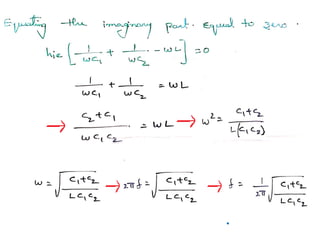 Equating the imaginary part equal to zero.
hie [ 1/ωC₁ + 1/ωC₂ - ωL ] = 0
1/ωC₁ + 1/ωC₂ = ωL
→ C₂+C₁ / ωC₁C₂ = ωL → ω² = C₁+C₂ / L(C₁C₂)
ω = √(C₁+C₂ / LC₁C₂) → 2πf = √(C₁+C₂ / LC₁C₂) → f = 1/2π √(C₁+C₂ / LC₁C₂)